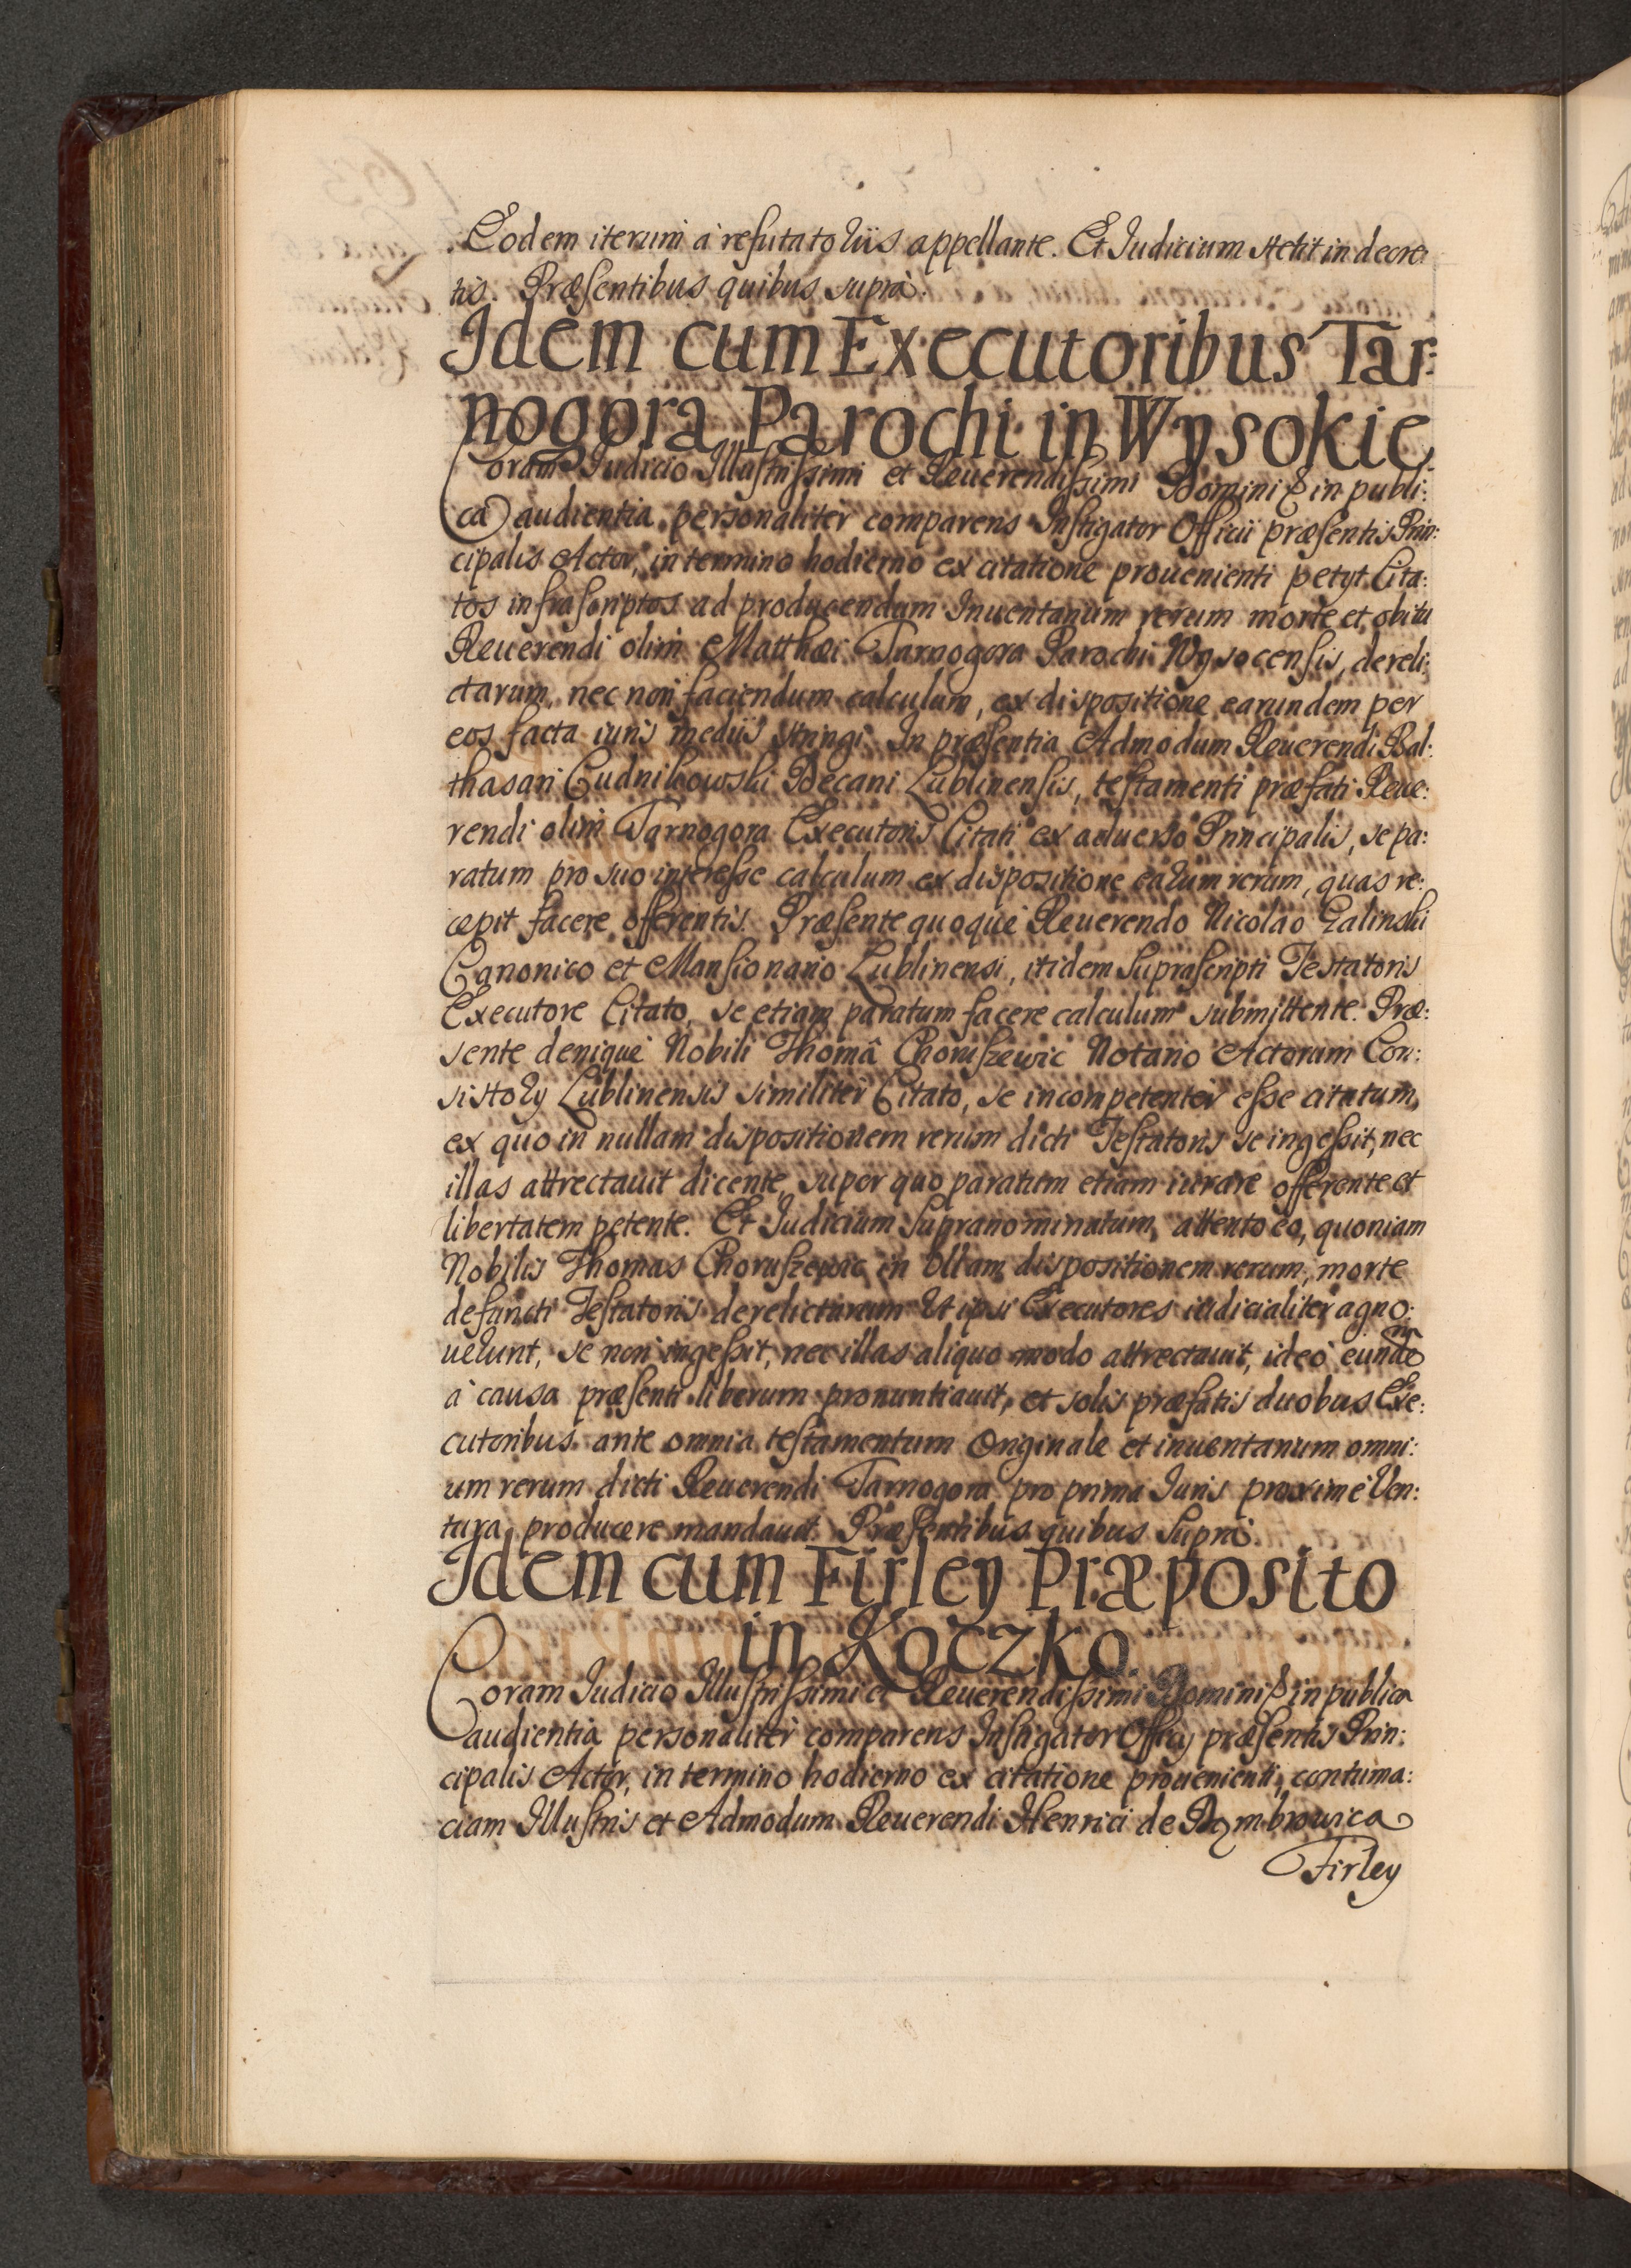 Eodem iterum à refutatoriis appellante. Et Iudicium stetit in decre:
tis. Præsentibus quibus suprà.
Idem cum Executoribus Tar:
nogora Parochi in Wysokie
Coram Iudicio Illustrissimi et Reuerendissimi Domini & in publi:
ca audientia personaliter comparens Instigator Officii præsentis Prin:
cipalis Actor, in termino hodierno ex citatione prouenienti petyt Cita:
tos infrascriptos ad producendum Inuentarium rerum morte et obitu
Reuerendi olim Matthæi Tarnogora Parochi Wysocensis, dereli:
ctarum, nec non faciendum calculum, ex dispositione earundem per
eos facta iuris mediis stringi. In præsentia Admodum Reuerendi Bal:
thasari Cudnikowski Decani Lublinensis, testamenti præfati Reue:
rendi olim Tarnogora Executoris Citati ex aduerso Principalis, se pa:
ratum pro suo interesse calculum ex dispositione earum rerum, quas re:
cepit facere offerentis. Præsente quoque Reuerendo Nicolao Galinski
Canonico et Mansionario Lublinensi, itidem Suprascripti Testatoris
Executore Citato, se etiam paratum facere calculum submittente. Præ:
sente denique Nobili Thomâ Choruszewic Notario Actorum Con:
sistory Lublinensis similiter Citato, se incompetenter esse citatum,
ex quo in nullam dispositionem rerum dicti Testatoris se ingessit, nec
illas attrectauit dicente, super quo paratum etiam iurare offerente et
libertatem petente. Et Iudicium Supranominatum, attento eo, quoniam
Nobilis Thomas Choruszewic in Ullam dispositionem rerum, morte
defuncti Testatoris derelictarum Ut ipsi Executores iudicialiter agno:
uerunt, se non ingessit, nec illas aliquo modo attrectauit, ideo eundem
à causa præsenti liberum pronuntiauit, et solis præfatis duobus Exe:
cutoribus ante omnia testamentum Originale et inuentarium omni:
um rerum dicti Reuerendi Tarnogora pro prima Iuris proximè Ven:
tura producere mandauit. Præsentibus quibus Suprà.
Idem cum Firley Præposito
in Koczko.
Coram Iudicio Illustrissimi et Reuerendissimi Domini & in publica
audientia personaliter comparens Instigator Officy præsentis Prin:
cipalis Actor, in termino hodierno ex citatione prouenienti, contuma:
ciam Illustris et Admodum Reuerendi Henrici de Dąmbrowica
Firley